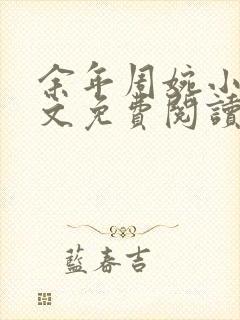 余年周婉小
文免費閱讀
藍春吉